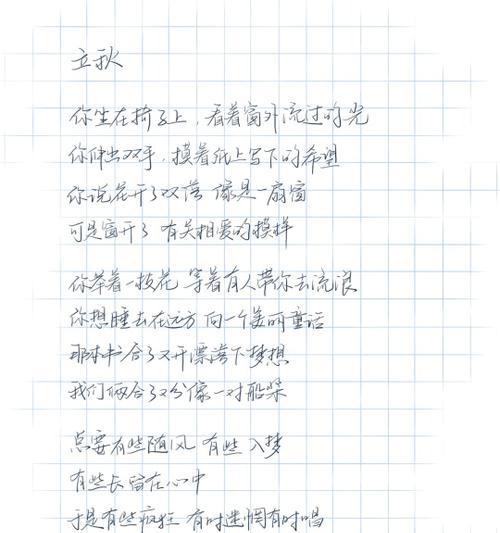 立秋
你坐在椅子上，看着窗外流过的光
你伸出双手，摸着纸上写下的希望
你说花开了又落 像是一扇窗
可是窗开了 有关相爱的模样
你举着一枝花 等着有人带你去流浪
你想睡去在远方 向一个美丽童话
那本书合了又开漂落下梦想
我们俩合了又分像一对船桨
总要有些随风 有些入梦
有些长留在心中
于是有些疯狂 有时迷惘有时唱